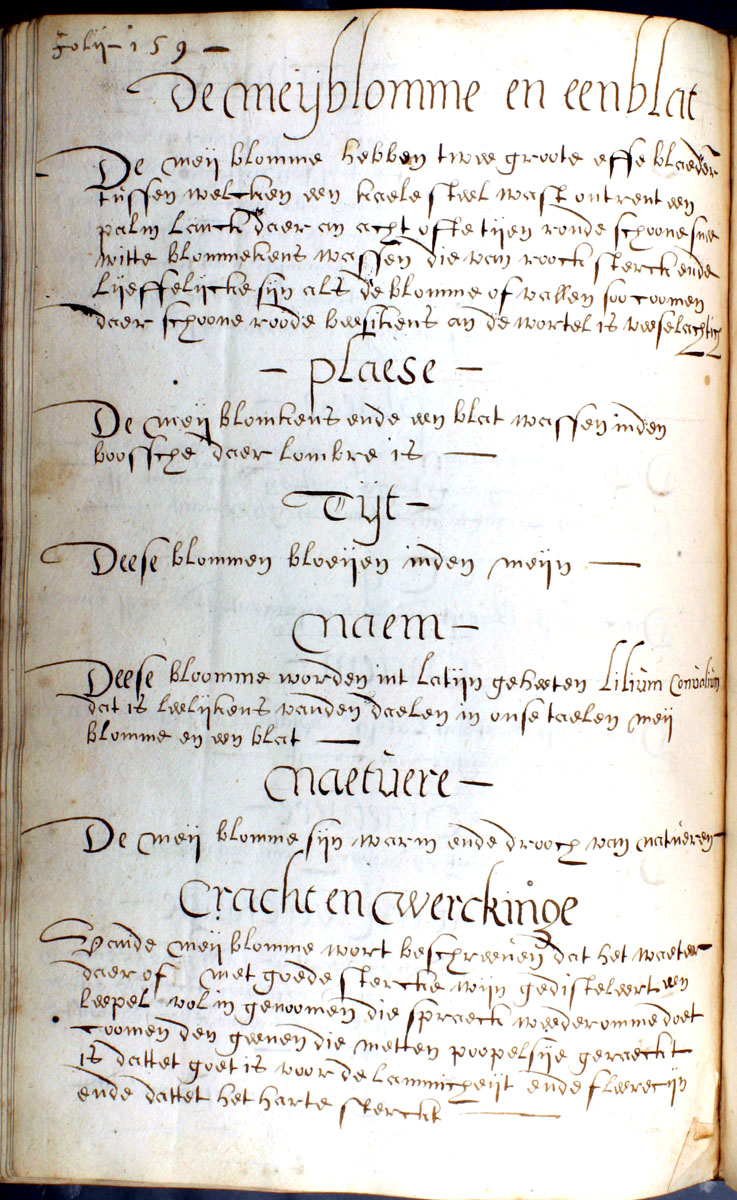 Folij - 159 -
De meijblomme en eenblat
De meij blomme hebben twee groote effe blaeder
tussen welcken een kaele steel wast ontrent een
palm lanck daer an acht ofte tijen ronde schoone snee
witte blommekens wassen die van roock sterck ende
lijeffelijcke sijn als de blomme of vallen soo coomen
daer schoone roode beesikens an de wortel is veeselachtich
- plaese -
De meij blomkens ende een blat wassen inden
boossche daer lombre is -
Tijt -
Deese blommen bloeijen inden meijn -
Naem -
Deese bloomme worden int latijn geheeten lilium Convalium
dat is leelijkens vanden daelen in onse taelen meij
blomme en een blat -
Naetuere -
De meij blomme sijn warm ende drooch van natueren
Cracht en werckinge
Vande meij blomme wort beschreeven dat het waeter
daer of met goede stercke wijn gedisteleert een
leepel vol in genoomen die spraeck weederomme doet
coomen den geenen die metten poopelsije geraeckt
is dattet goet is voor de lammicheijt ende fleerecijn
ende dattet het harte sterckt -